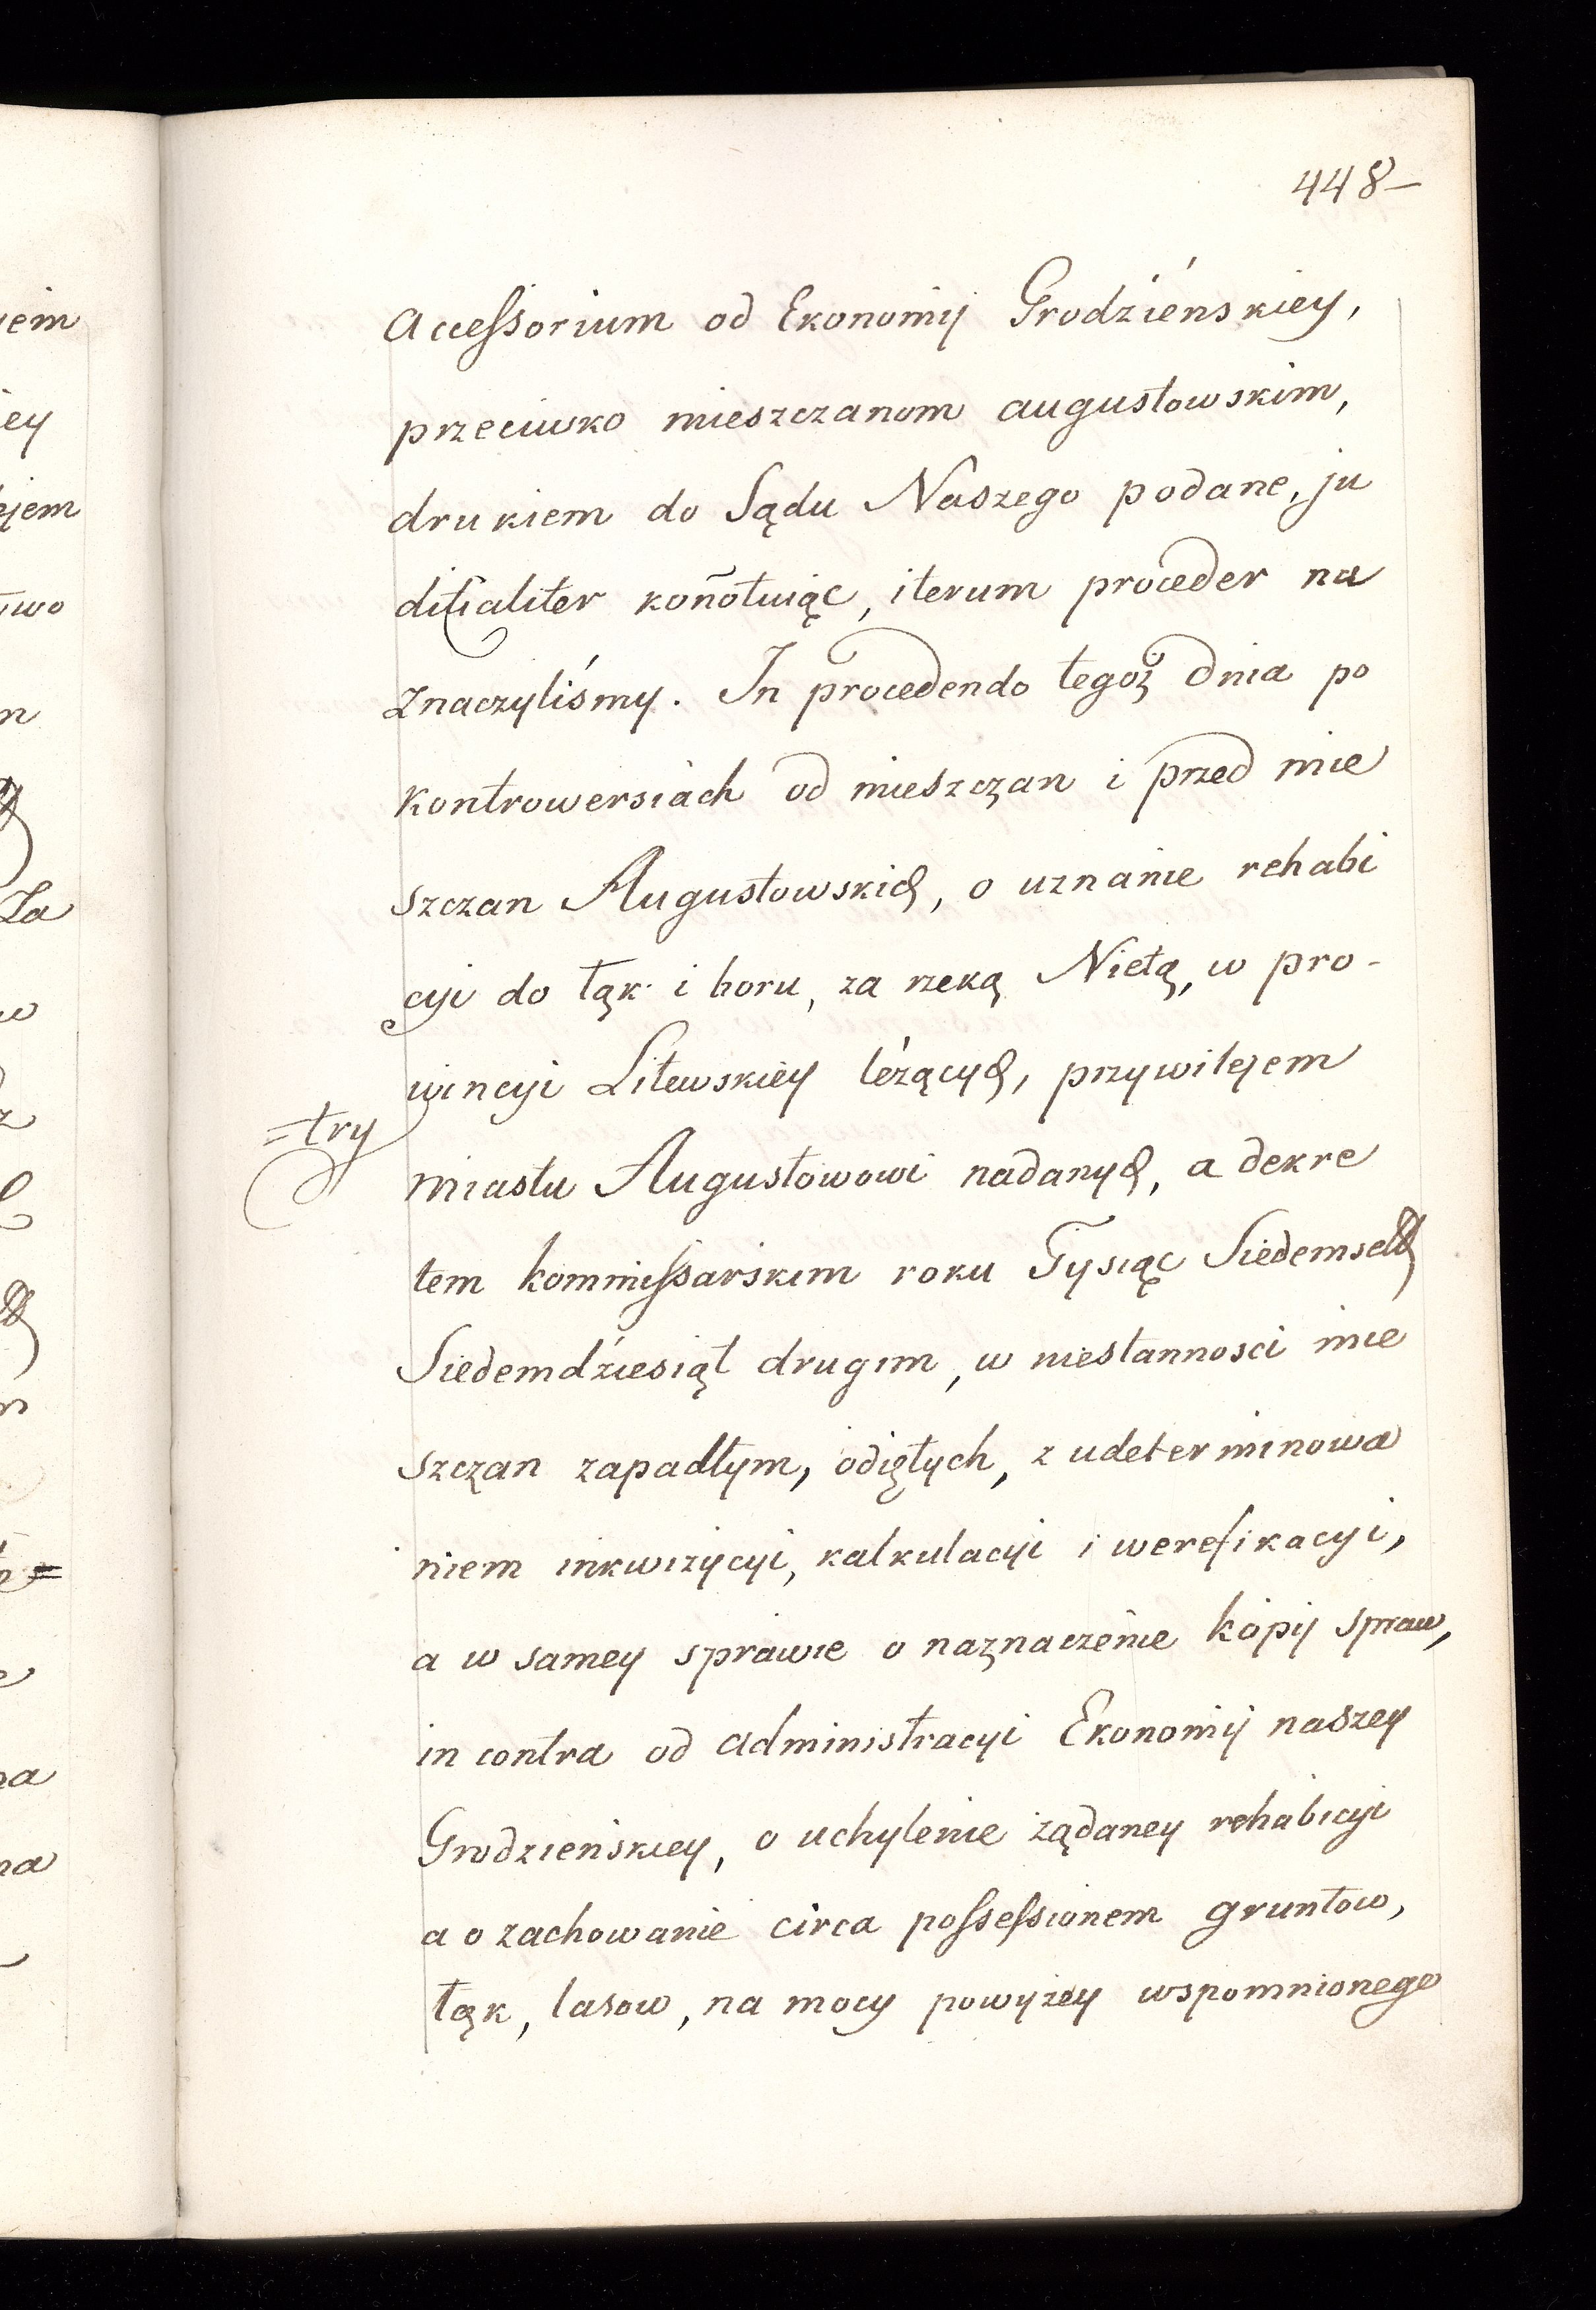 448-
Accessorium od Ekonomij Grodzieńskiey,
przeciwko mieszczanom augustowskim,
drukiem do Sądu Naszego podane, ju
ditialiter kon̄otuiąc, iterum proceder na
znaczyliśmy. In procedendo tegoż dnia po
kontrowersiach od mieszczan i przed mie
szczan Augustowskich, o uznanie rehabi
cyi do łąk i boru, za rzeką Nietą, w pro-
wincyi Litewskiey leżących, przywilejem
=try
miastu Augustowowi nadanych, a dekre
tem kommissarskim roku Tysiąc Siedemset
Siedemdziesiąt drugim, w niestannosci mie
szczan zapadłym, odiętych, z udeterminowa
niem inkwizycyi, kalkulacyi i werefikacyi,
a w samey sprawie o naznaczenie kopij spraw,
in contra od administracyi Ekonomij naszey
Grodzieńskiey, o uchylenie żądaney rehabicyi
a o zachowanie circa possessionem gruntow,
łąk, lasow, na mocy powyżey wspomnionego
ey
em
Za
na